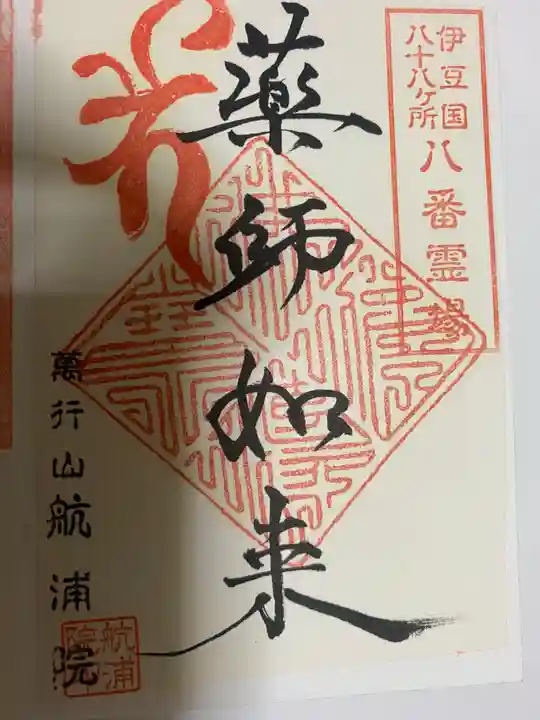 伊豆国
八十八ヶ所
八番霊場
薬師如来
萬行山航浦院
航浦
院